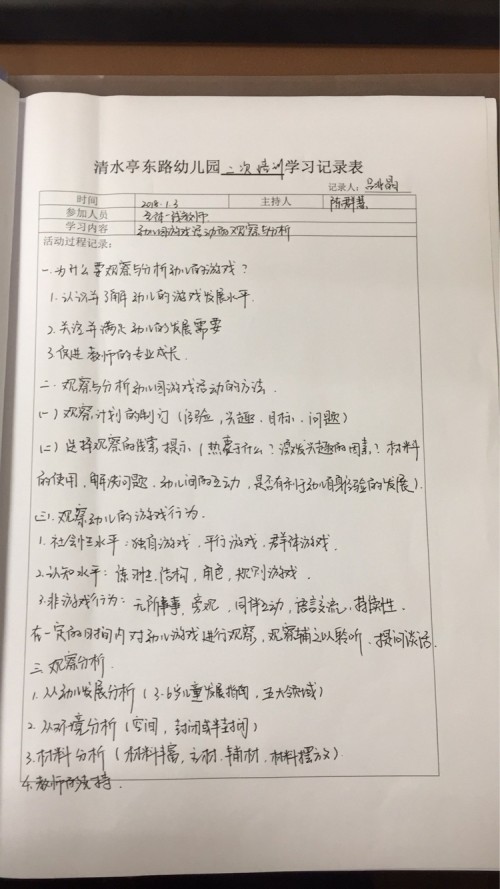 清水亭东路幼儿园二次培训学习记录表
记录人:
时间 2018.1.3 主持人 陈群慧
参加人员 全体一线教师
学习内容 幼儿园游戏活动的观察与分析
活动过程记录:
一.为什么要观察与分析幼儿的游戏?
1.认识并了解幼儿的游戏发展水平.
2.关注并满足幼儿的发展需要
3.促进教师的专业成长.
二.观察与分析幼儿园游戏活动的方法.
(一)观察计划的制订(经验,兴趣.目标.问题)
(二)选择观察的线索提示(热衷于什么?激发兴趣的因素?材料
的使用,解决问题.幼儿间的互动,是否有利于幼儿自身经验的发展).
(三).观察幼儿的游戏行为.
1.社会性水平:独自游戏.平行游戏.群体游戏.
2.认知水平:练习性.结构,角色,规则游戏.
3.非游戏行为:无所事事,旁观,同伴互动,语言交流.指向性.
在一定的时间内对幼儿游戏进行观察,观察辅之以聆听.提问谈话.
三.观察分析.
1.从幼儿发展分析(3-6岁儿童发展指南,五大领域)
2.从环境分析(空间,封闭或半封闭)
3.材料分析(材料丰富,主材.辅材.材料摆放)
4.教师的支持.